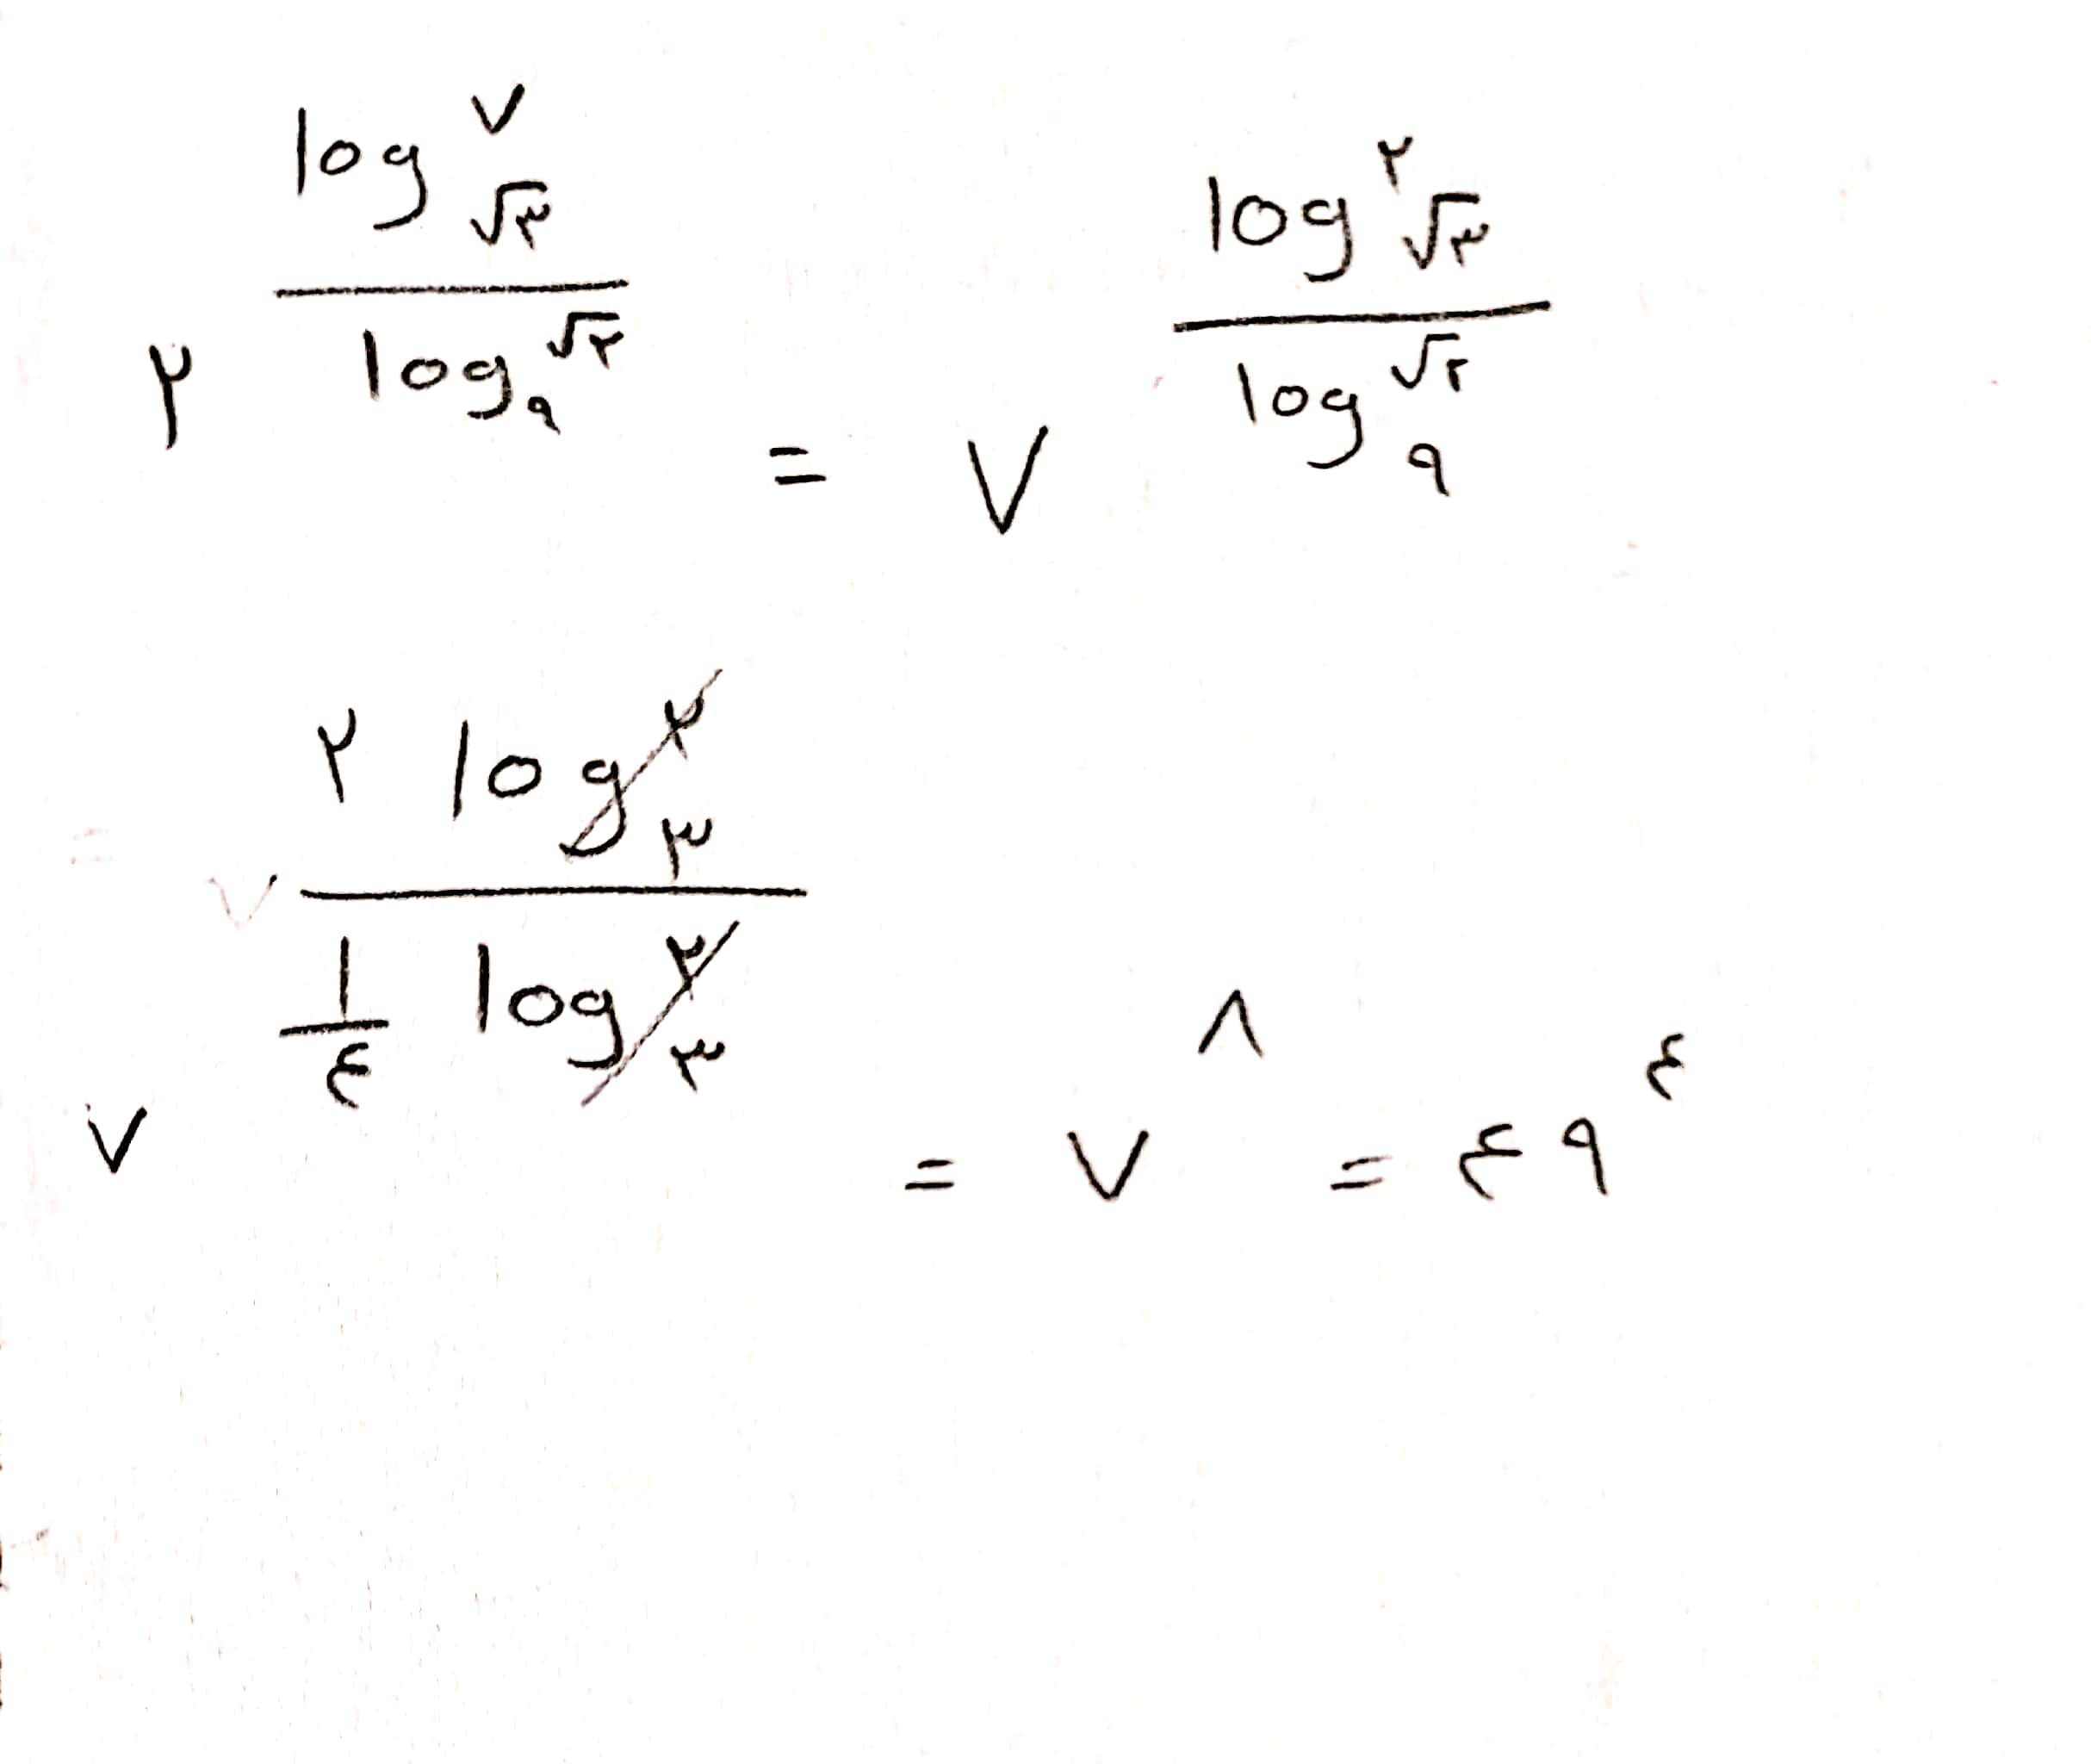 ۲^(log_√۳ ۷ / log_۹ √۲) = ۷^(log_√۳ ۲ / log_۹ √۲)
۷^(۲ log_۳ ۲ / (۱/۴) log_۳ ۲) = ۷^۸ = ۴۹^۴